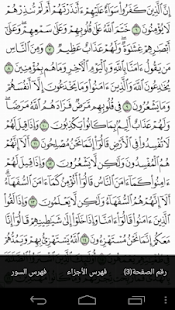 إِنَّ الَّذِينَ كَفَرُوا سَوَاءٌ عَلَيْهِمْ ءَأَنذَرْتَهُمْ أَمْ لَمْ تُنذِرْهُمْ
لَا يُؤْمِنُونَ ٦ خَتَمَ اللَّهُ عَلَىٰ قُلُوبِهِمْ وَعَلَىٰ سَمْعِهِمْ وَعَلَىٰ
أَبْصَٰرِهِمْ غِشَٰوَةٌ وَلَهُمْ عَذَابٌ عَظِيمٌ ٧ وَمِنَ النَّاسِ
مَن يَقُولُ ءَامَنَّا بِاللَّهِ وَبِالْيَوْمِ الْءَاخِرِ وَمَا هُم بِمُؤْمِنِينَ ٨
يُخَٰدِعُونَ اللَّهَ وَالَّذِينَ ءَامَنُوا وَمَا يَخْدَعُونَ إِلَّا أَنفُسَهُمْ
وَمَا يَشْعُرُونَ ٩ فِي قُلُوبِهِم مَّرَضٌ فَزَادَهُمُ اللَّهُ مَرَضًا
وَلَهُمْ عَذَابٌ أَلِيمٌ بِمَا كَانُوا يَكْذِبُونَ ١٠ وَإِذَا قِيلَ لَهُمْ
لَا تُفْسِدُوا فِي الْأَرْضِ قَالُوا إِنَّمَا نَحْنُ مُصْلِحُونَ ١١ أَلَا إِنَّهُمْ
هُمُ الْمُفْسِدُونَ وَلَٰكِن لَّا يَشْعُرُونَ ١٢ وَإِذَا قِيلَ لَهُمْ
ءَامِنُوا كَمَا ءَامَنَ النَّاسُ قَالُوا أَنُؤْمِنُ كَمَا ءَامَنَ السُّفَهَاءُ
أَلَا إِنَّهُمْ هُمُ السُّفَهَاءُ وَلَٰكِن لَّا يَعْلَمُونَ ١٣ وَإِذَا لَقُوا
الَّذِينَ ءَامَنُوا قَالُوا ءَامَنَّا وَإِذَا خَلَوْا إِلَىٰ شَيَٰطِينِهِمْ قَالُوا إِنَّا
مَعَكُمْ إِنَّمَا نَحْنُ مُسْتَهْزِءُونَ ١٤ اللَّهُ يَسْتَهْزِئُ بِهِمْ وَيَمُدُّهُمْ
رقم الصفحة(3) فهرس الأجزاء فهرس السور